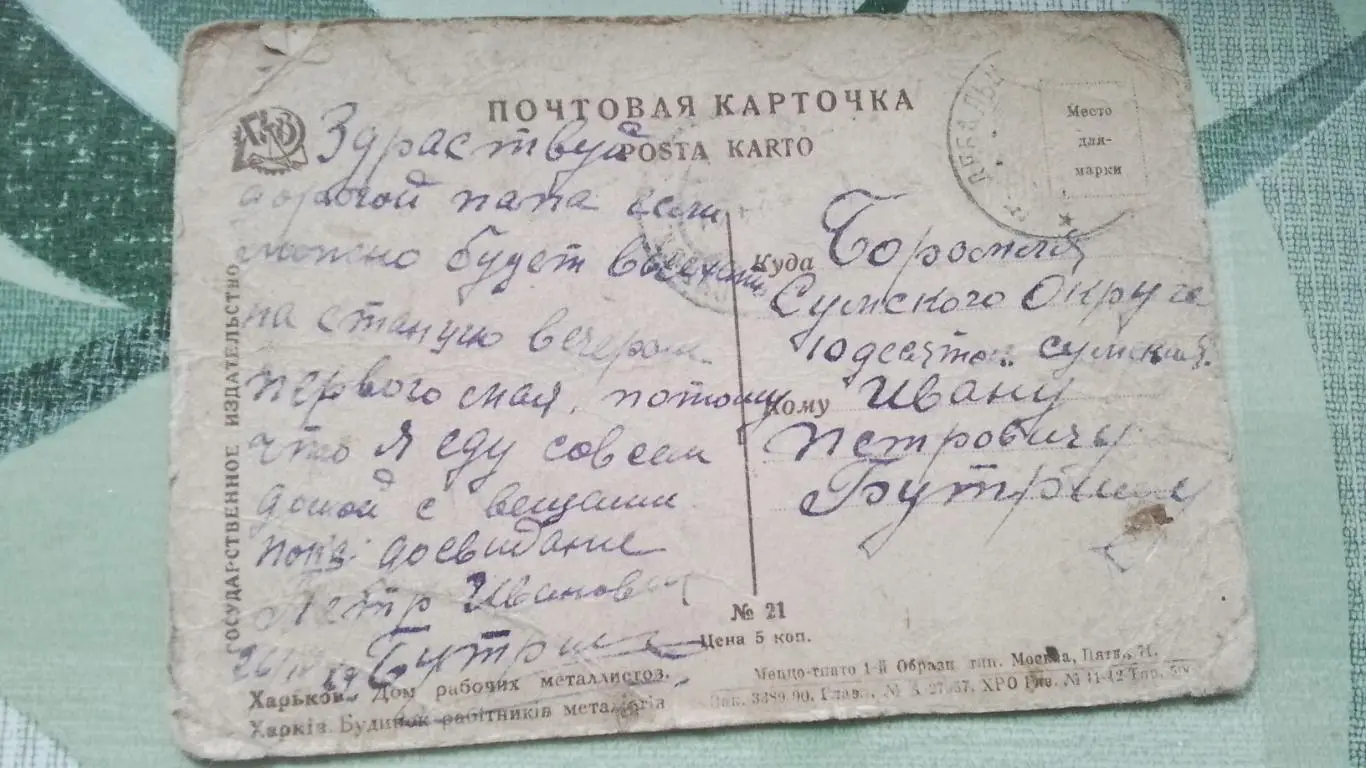 ПОЧТОВАЯ КАРТОЧКА
POSTA KARTO
Место
для-
марки
ГОСУДАРСТВЕННОЕ ИЗДАТЕЛЬСТВО
Здраствуй
дорогой папа если
можно будет выехати
на станцию вечером
первого мая, потому
что я еду совсем
домой с вещами
папа досвидание
Петр Иванович
Бутрим
Куда Боромля
Сумского Округа
Кому Ивану
Петровичу
Бутрим
№ 21
Цена 5 коп.
Харьков. Дом рабочих металлистов.
Харкiв. Будинок робiтникiв металiстiв
Меццо-тинто 1-й Образц. тип. Москва, Пятн. 71.
Зак. 3489-90. Главл. № А 27